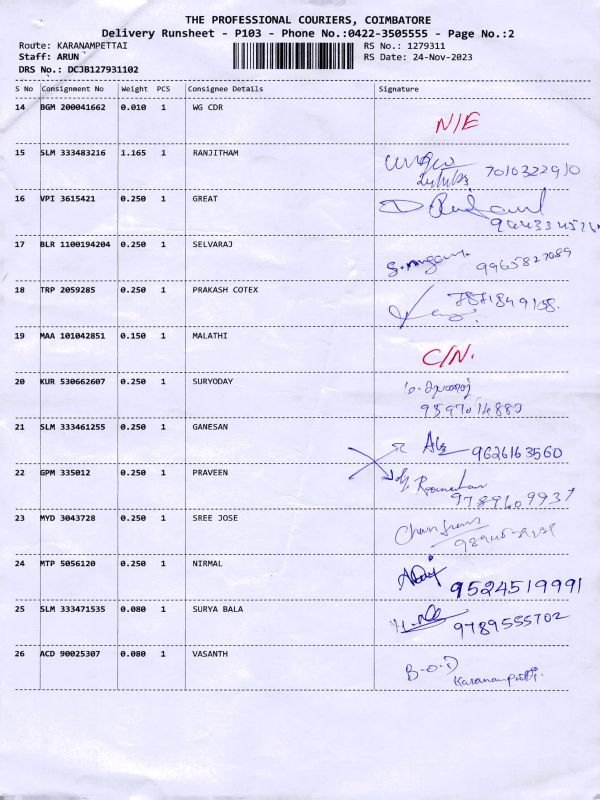 THE PROFESSIONAL COURIERS, COIMBATORE
Delivery Runsheet - P103 - Phone No.:0422-3505555 - Page No.:2
Route: KARANAMPETTAI RS No.: 1279311
Staff: ARUN RS Date: 24-Nov-2023
DRS No.: DCJB127931102
S No Consignment No Weight PCS Consignee Details Signature
14 BGM 200041662 0.010 1 WG CDR N/E
15 SLM 333483216 1.165 1 RANJITHAM
7010322910
16 VPI 3615421 0.250 1 GREAT
17 BLR 1100194204 0.250 1 SELVARAJ
9965827089
18 TRP 2059285 0.250 1 PRAKASH COTEX
19 MAA 101042851 0.150 1 MALATHI C/N.
20 KUR 530662607 0.250 1 SURYODAY
21 SLM 333461255 0.250 1 GANESAN 9626163560
22 GPM 335012 0.250 1 PRAVEEN
9789609937
23 MYD 3043728 0.250 1 SREE JOSE
24 MTP 5056120 0.250 1 NIRMAL 9524519991
25 SLM 333471535 0.080 1 SURYA BALA 9789555702
26 ACD 90025307 0.080 1 VASANTH B-O-D
Karanampetti.